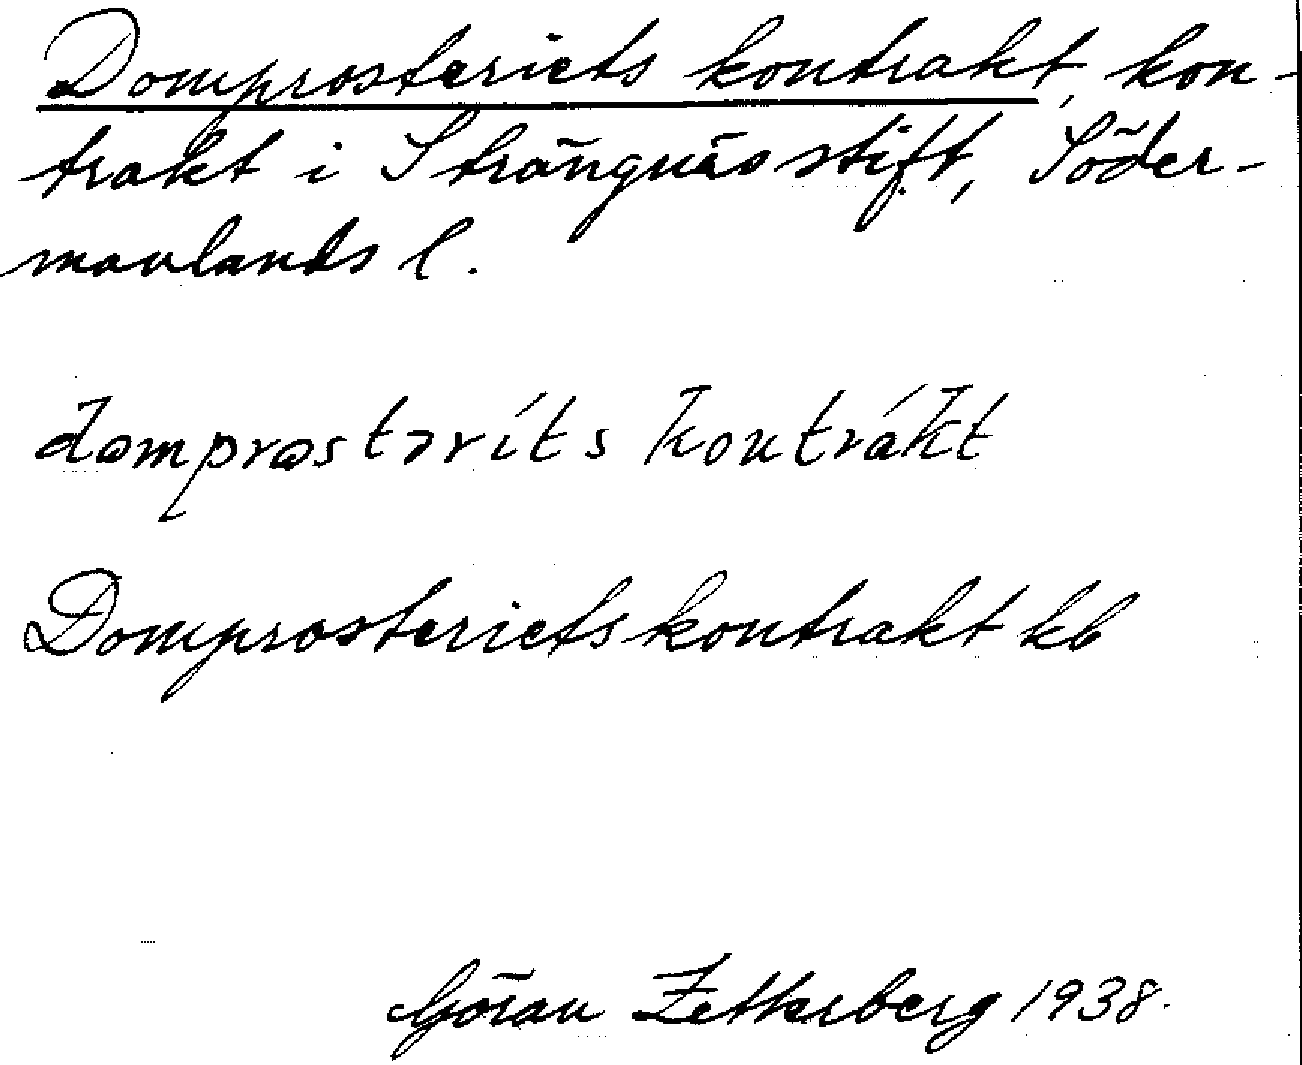 Domprosteriets kontrakt, kon-
trakt i Strängnäs stift, Söder-
manlands l.
dɷmprɷstərí̄ts kontrákt
Domprosteriets kontrakt kb
Göran Zetterberg 1938.